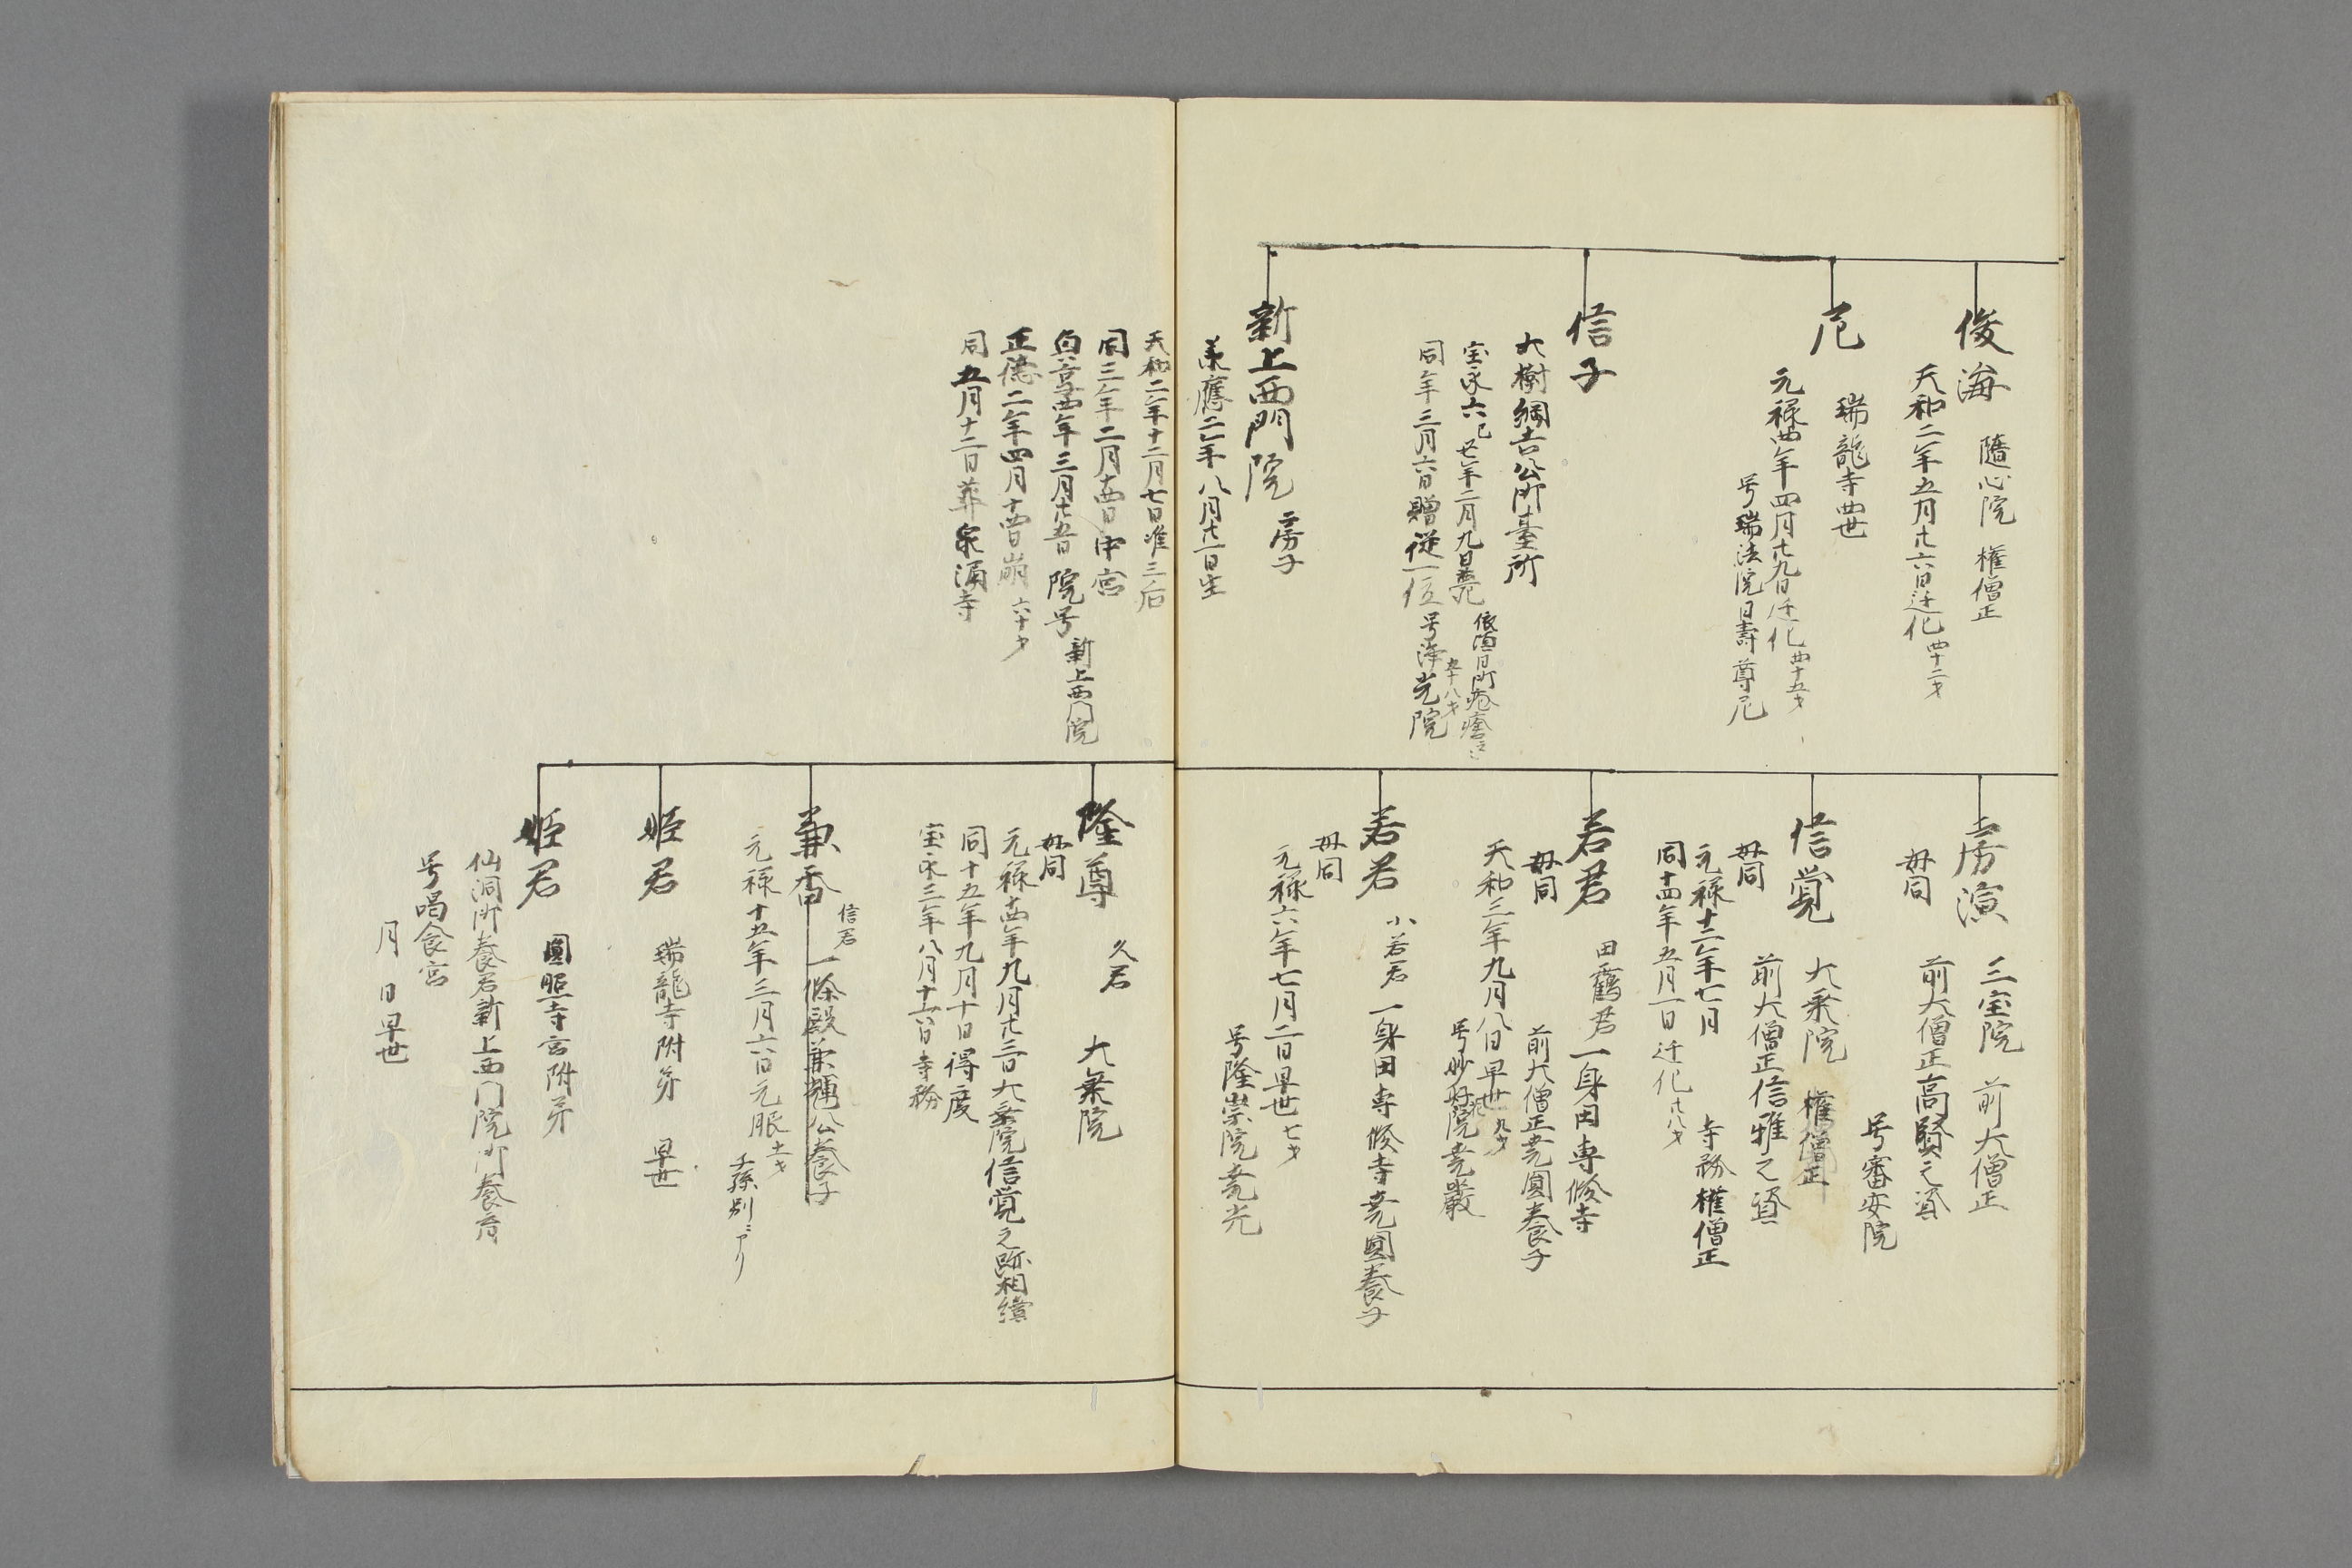 俊海
隨心院　権僧正
天和二年五月廿六日迁化四十二才
尼
瑞龍寺四世
元禄四年四月廿九日迁化四十五才
号瑞法院日壽尊尼
信子
大樹綱吉公御臺所
宝永六己丑年二月九日薨
五十八才
同年三月六日贈従一位
号浄光院
新上西門院　房子
承應二年八月廿一日生
天和二年十二月七日准三后
同三年二月十四日中宮
貞享四年三月廿五日院号
新上西門院
正徳二年四月十四日崩六十才
同五月十二日葬泉涌寺
房演
三宝院　前大僧正
前大僧正高賢之資
母同
号審安院
信覚
大乗院　権僧正
前大僧正信雅之資
母同
元禄十二年七月　寺務権僧正
同十四年五月一日迁化廿八才
若君
田鶴君
一身田専修寺
前大僧正尭圓養子
母同
天和三年九月八日早世九才
号妙好院尭巖
若君
小若君
一身田専修寺尭圓養子
母同
元禄六年七月二日早世七才
号隆崇院尭光
隆尊
久君　大乗院
母同
元禄十四年九月廿三日大乗院信覚之跡相續
同十五年九月十日得度
宝永三年八月十六日寺務
兼香
信君
一條殿兼輝公養子
元禄十五年三月六日元服十一才
子孫別ニアリ
姫君
瑞龍寺附弟　早世
姫君
圓照寺宮附弟
仙洞御養君新上西門院御養育
号喝食宮
月　日早世